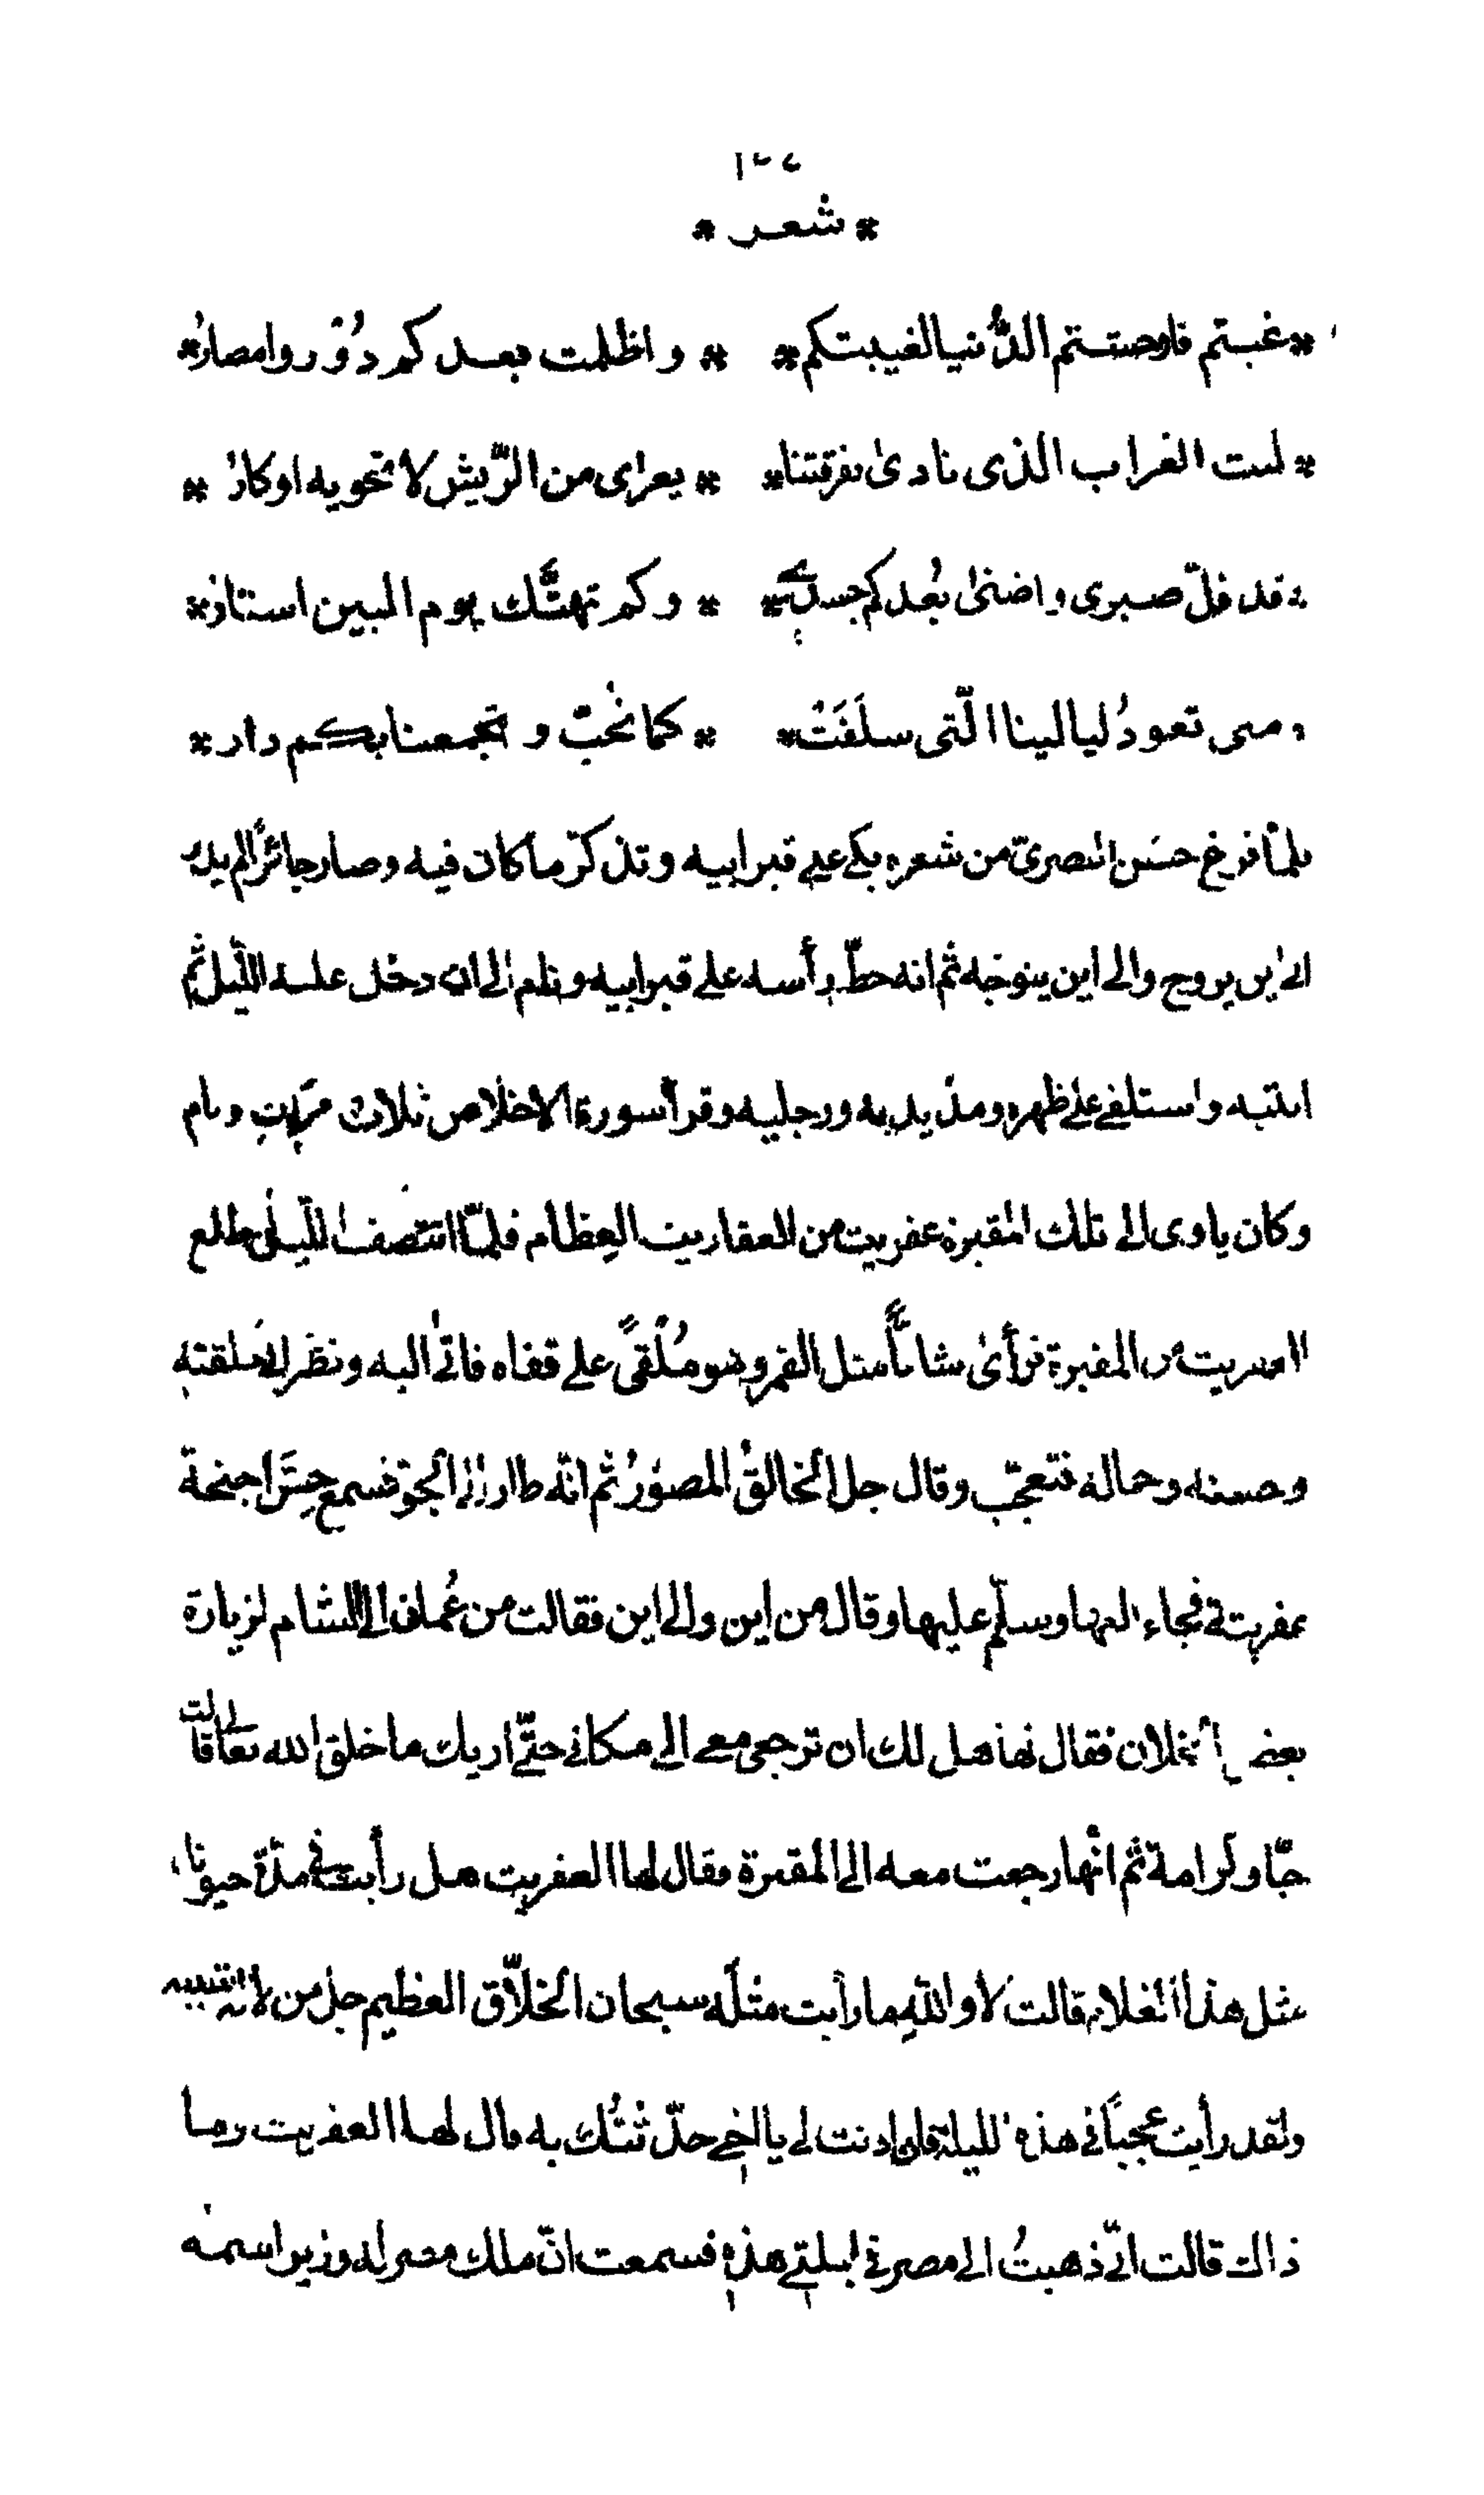 * شعر *
* غبتم فاوحشتم الدُّنيا لغيبتكم * * واظلمت بعدكم دُوْر وامصارُ *
* ليت الغراب الذى نادىٰ بفرقتنا * * يعرىٰ من الرّيش لا تحويه اوكارُ *
* قد قلّ صبرى واضنىٰ بُعدكم جسدى * * وكم تهتّك يوم البين استار *
* ترى تعودُ ليالينا الّتى سلَفَتْ * * كما نُحبّ وتجمعنا بكم دار *
فلمّا فرغ حسَن البصرىّ من شعره بكى على قبر ابيه وتذكّر ما كان فيه وصار حائرًا لم يدر
الى اين يروح والى اين يتوجّه ثم انه حطّ رأسه على قبر ابيه ونام الى ان دخل عليه اللّيل ثم
انتبه واستلقى على ظهره ومدّ يديه ورجليه وقرأ سورة الاخلاص ثلاث مرّات ونام
وكان ياوى الى تلك المقبرة عفريت من العفاريت العِظام فلمّا انتصف اللّيل طلع
العفريت من المقبرة فرأىٰ شابّاً مثل القمر وهو مُلْقىً على قفاه فاتىٰ اليه ونظر الى خلقته
وحسنه وحاله فتعجّب وقال جل الخالقُ المصوّرُ ثم انّه طار الى الجوّ فسمع حِسَّ اجنحة
عفريتة فجاء اليها وسلّم عليها وقال من اين والى اين فقالت من عُمان الى الشام لزيارة
بعض الخلان فقال لها هل لك ان ترجعى معى الى مكانى حتّى اريك ما خلق الله تعالى قالت
حبّا وكرامة ثم انّها رجعت معه الى المقبرة فقال لها العفريت هل رأيت فى مدّة حيوتك
مثل هذا الغلام قالت لا واللهِ ما رأيت مثلَه سبحان الخلّاق العظيم جلّ من لا له شبيه
ولقد رأيت عجباً فى هذه الليلة فان اذنت لى يا اخى حدّثتُك به قال لها العفريت وما
ذاك قالت انّى ذهبتُ الى مصر فى ليلتى هذه فسمعت انّ ملك مصر له وزير اسمه